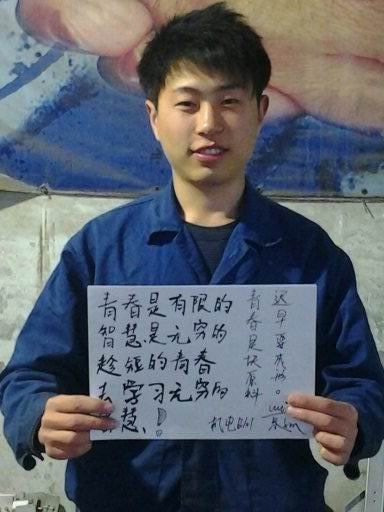 青春是有限的
智慧是无穷的
趁短的青春
去学习无穷的
智慧、!
青春是块原料
迟早要成形。
机电801